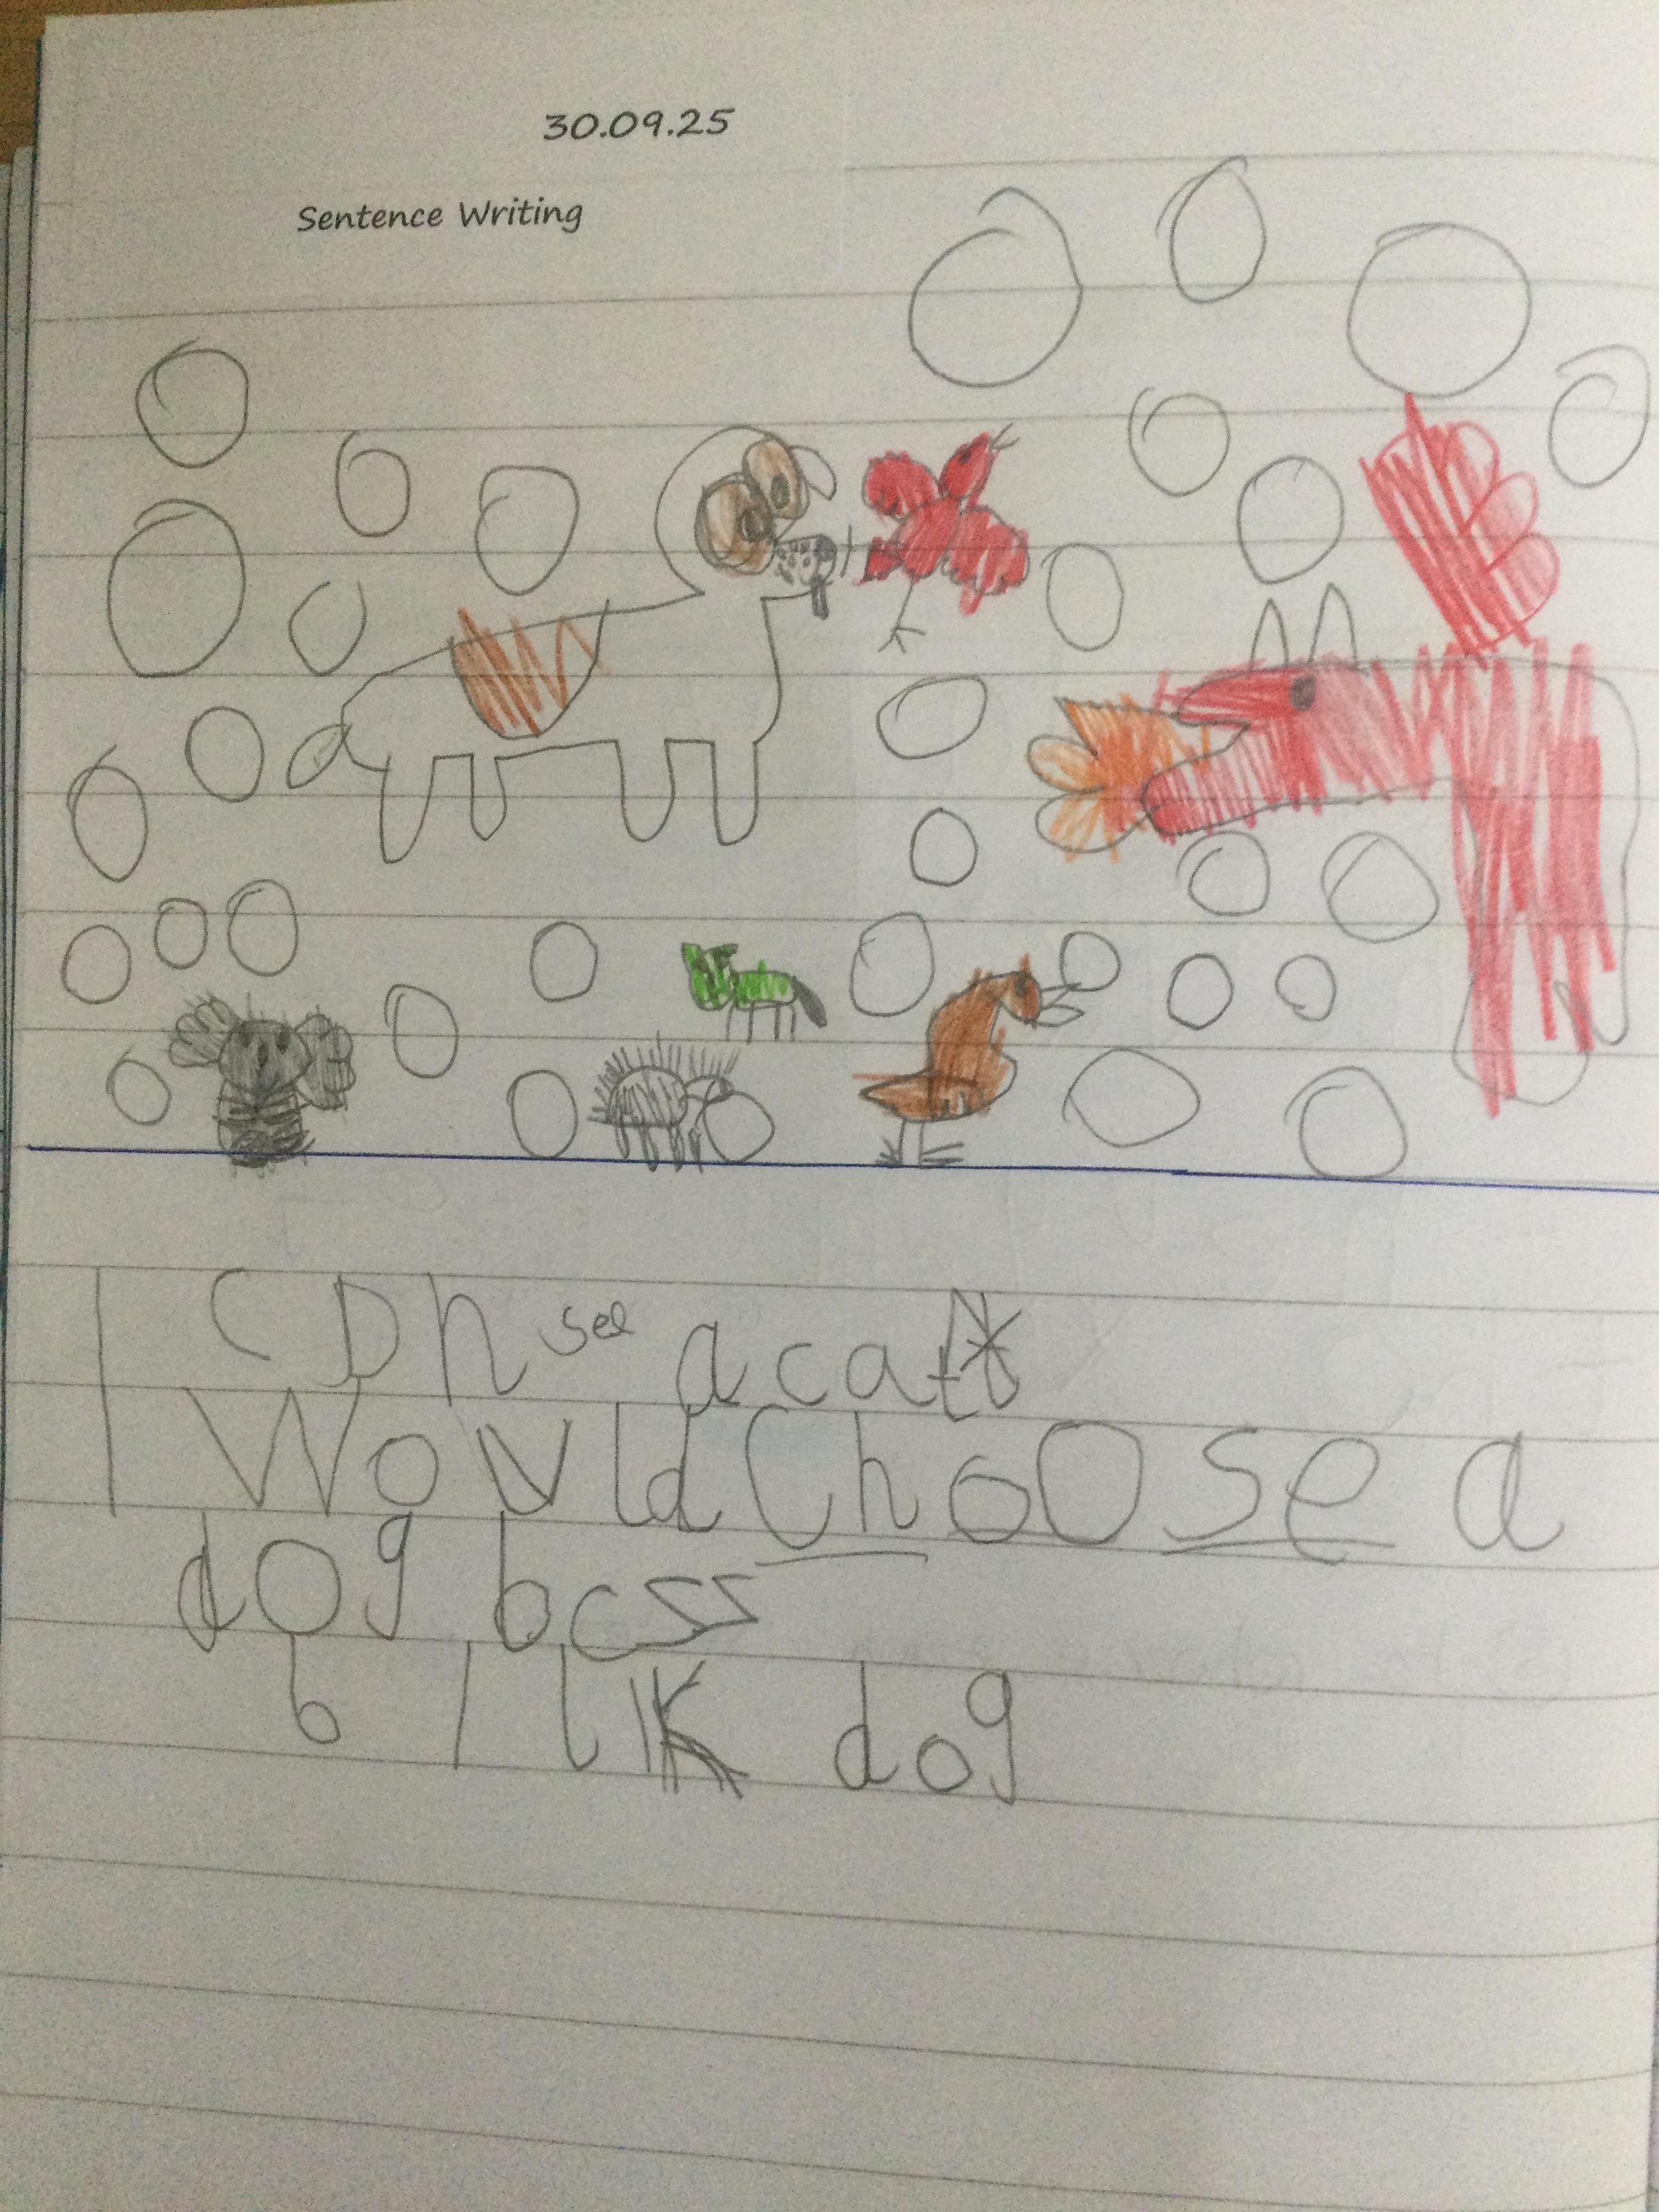 30.09.25
Sentence Writing
I cDn see a cat
I Would Choose a
dog bcss
b I lik dog